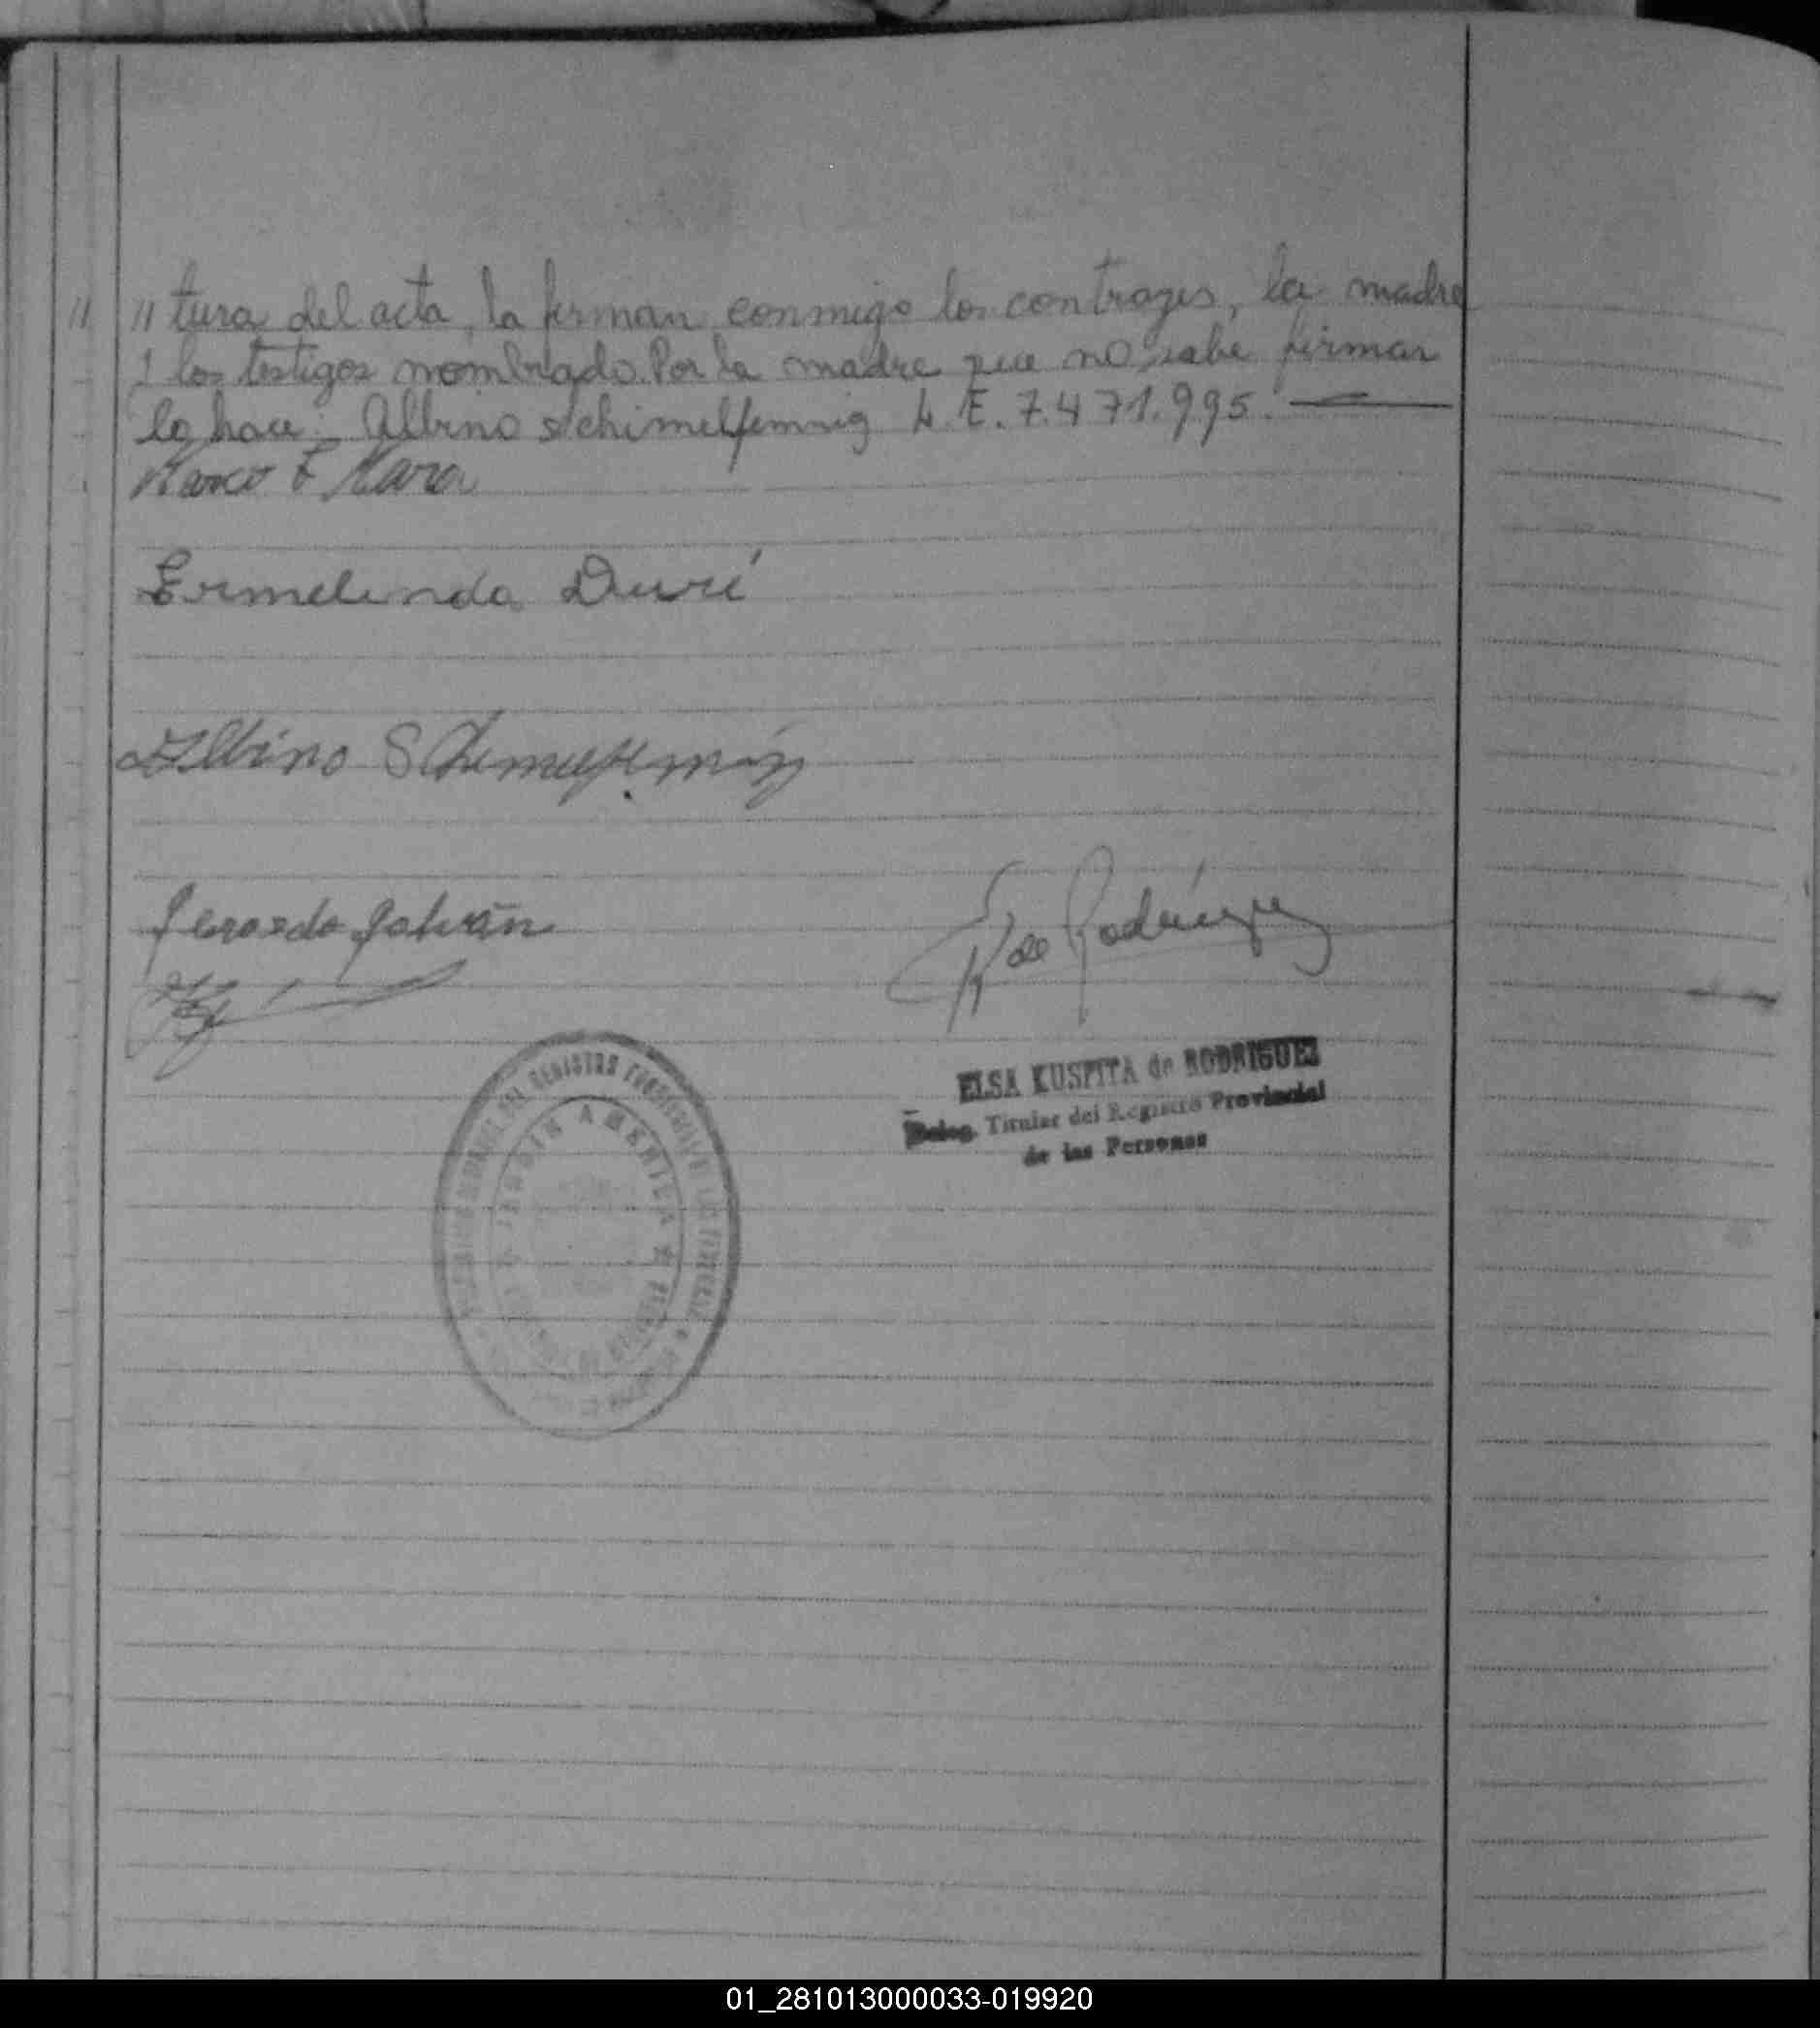 // // tura del acta, la firman conmigo los contrayes, la madre
y los testigos nombrado. Por la madre que no sabe firmar
lo hace: Albino Schimelfemnig L.E. 7.471.995.
Marco F Mara
Ermelinda Duré
Albino
Gerardo Galván
de Rodríguez
ELSA KUSPITA de RODRIGUEZ
Deleg. Titular del Registro Provincial
de las Personas
DEL REGISTRO PROVINCIAL DE LAS PERSONAS
JARDIN AMERICA
01_281013000033-019920